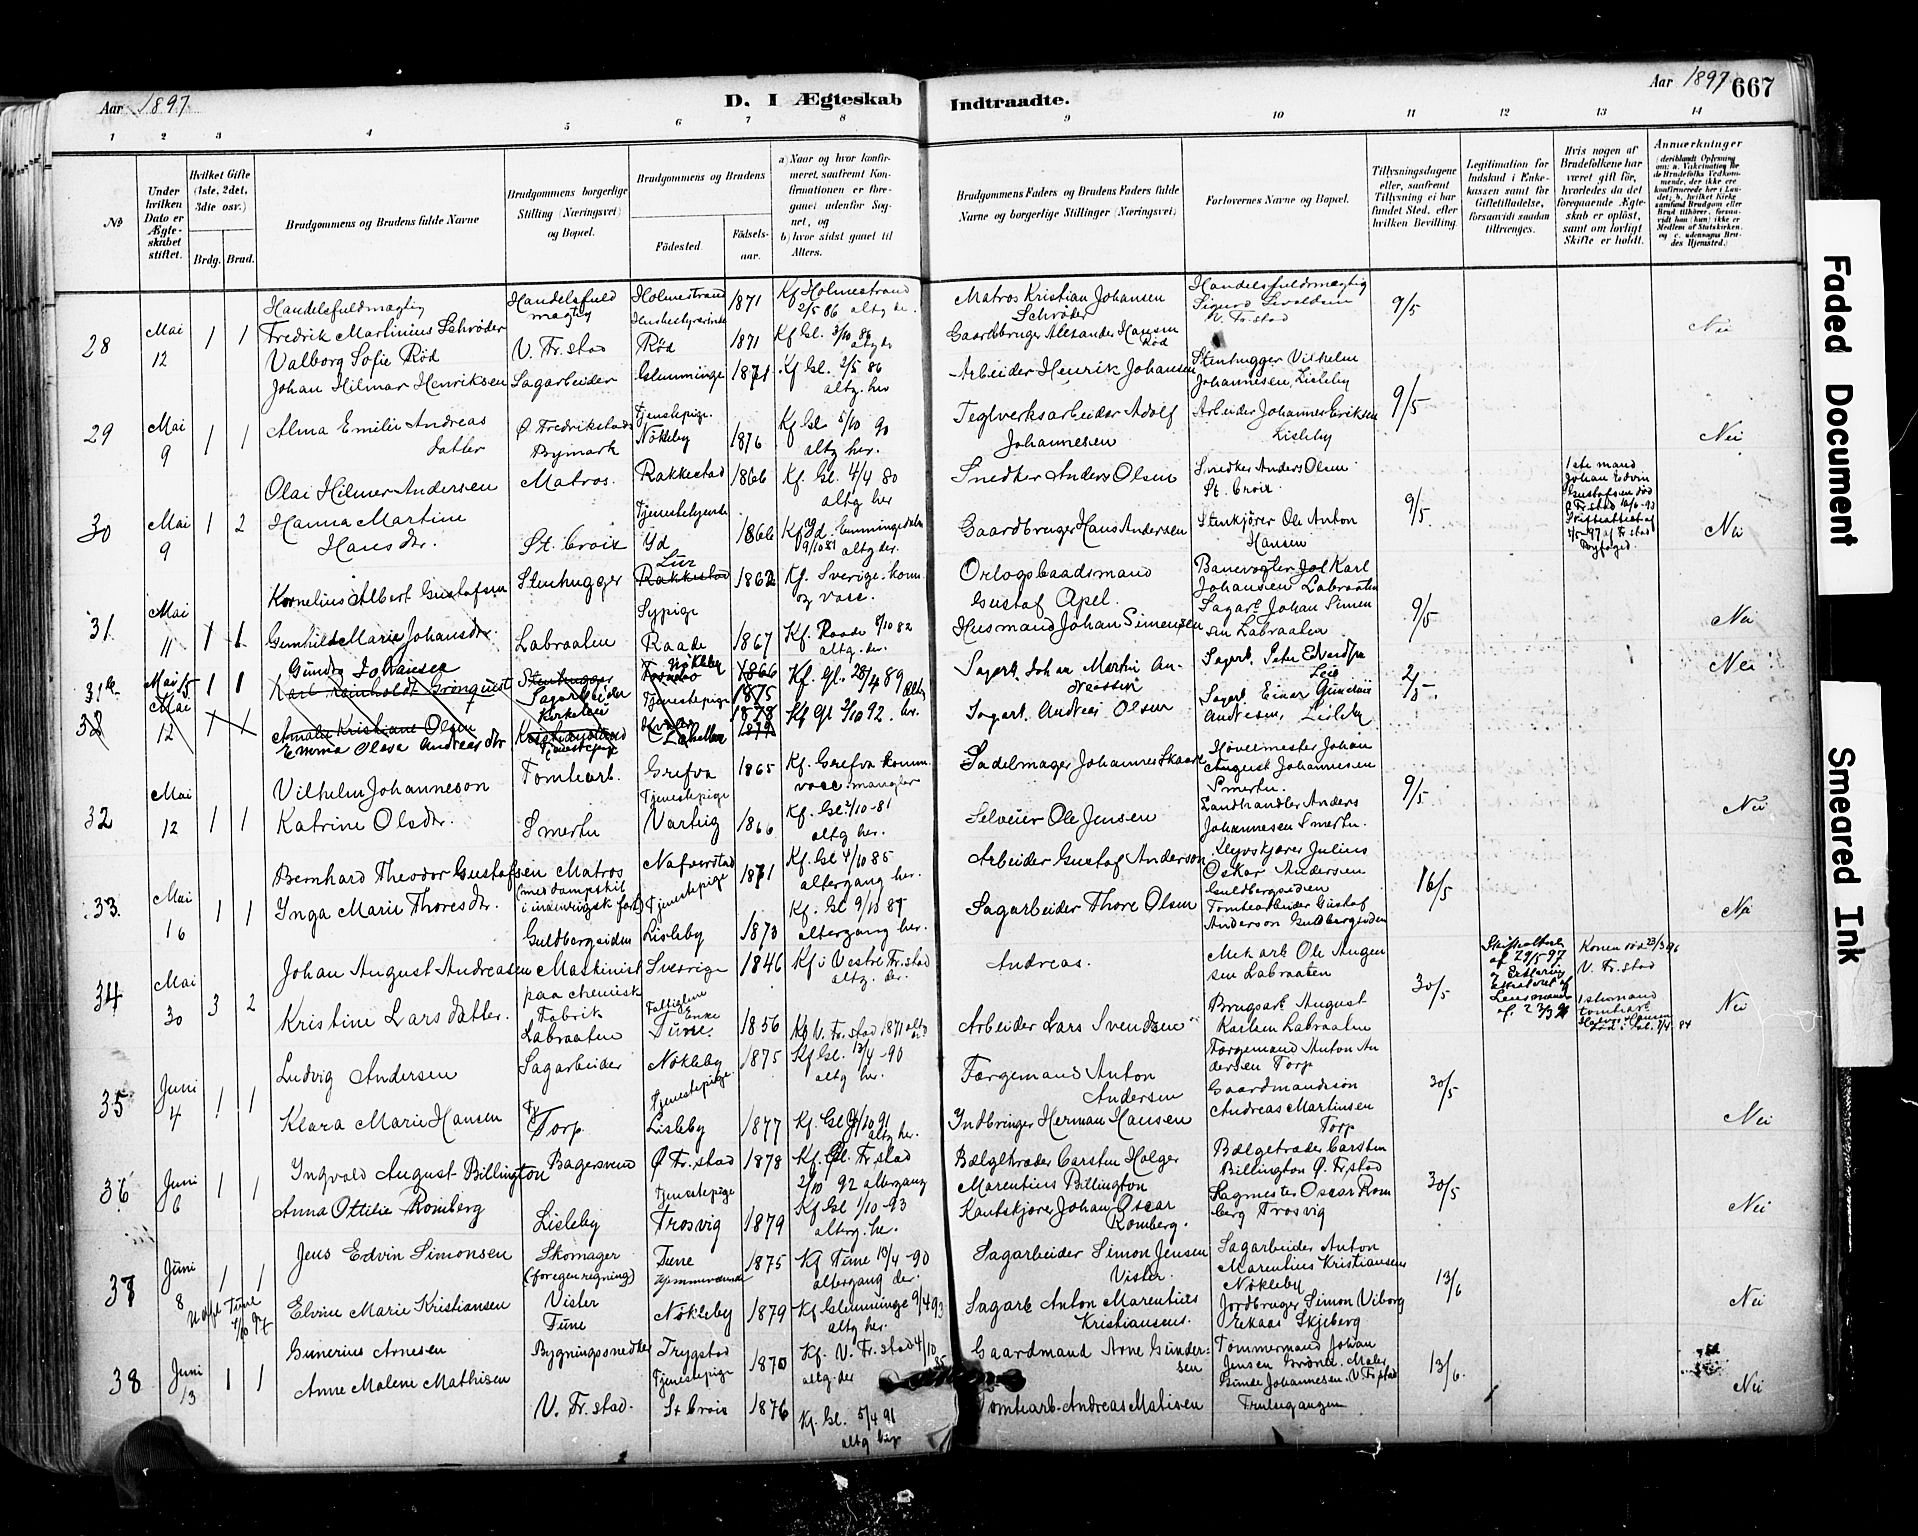 Aar 1897
D. I Ægteskab
Indtraadte.
Aar 1897 667
1 2 3 4 5 6 7 8 9 10 11 12 13 14
No
Under hvilken Dato er Ægteskabet stiftet.
Hvilket Gifte (1ste, 2det, 3die osv.)
Brdg. Brud.
Brudgommens og Brudens fulde Navne
Brudgommens borgerlige Stilling (Næringsvei) og Bopæl.
Brudgommens og Brudens
Födested.
Födselsaar.
a) Naar og hvor konfirmeret, saafremt Konfirmationen er foregaaet udenfor Sognet, og
b) hvor sidst gaaet til Alters.
Brudgommens Faders og Brudens Faders fulde Navne og borgerlige Stillinger (Næringsvei)
Forlovernes Navne og Bopæl.
Tillysningsdagene eller, saafremt Tillysning ei har fundet Sted, efter hvilken Bevilling.
Legitimation for Indskud i Enkekassen samt for Giftetilladelse, forsaavidt saadan tiltrænges.
Hvis nogen af Brudefolkene har været gift før, hvorledes da det foregaaende Ægteskab er oplöst, samt om lovligt Skifte er holdt.
Anmærkninger
28 Mai 12 1 1
Handelsfuldmægtig
Fredrik Martinius Schrøder
Valborg Sofie Rød
Handelsfuld mægtig
V. Fr. stad
Holmestrand 1871
Rød 1871
Kf Holmestrand 2/5 86 altg der.
Kf Gl. 3/10 86 altg der
Matros Kristian Johansen Schrøder
Gaardbruger Alexander Hansen Rød
Handelsfuldmægtig
V. Fr. stad
9/5
Nei
29 Mai 9 1 1
Johan Hilmar Henriksen
Alma Emilie Andreas datter
Sagarbeider
Ø Fredrikstads Bymark
Glemminge 1871
Tjenestepige.
Nökleby 1876
Kf Gl. 2/5 86 altg. her
Kf Gl 5/10 90 altg her.
Arbeider Henrik Johansen
Teglverksarbeider Adolf Johannesen
Stenhugger Vilhelm Johannesen, Lisleby
Arbeider Johannes Eriksen Lisleby
9/5
Nei
30 Mai 9 1 2
Olai Hilmer Andersen
Hanna Martine Hansdtr.
Matros.
St. Croix
Rakkestad 1866
Id 1866
Kf. Gl. 4/4 80 altg her
Kf Id. Enningedalen 9/10 81 altg der.
Snedker Anders Olsen
Gaardbruger Hans Andersen
Snedker Anders Olsen St. Croix
Stenkjörer Ole Anton Hansen
9/5.
1ste mand Johan Edvin Gustafsen død Ø Fr. stad 10/6-93
Skifteattest af 4/5-97 af Fr stad Byfoged.
Nei
31 Mai 11 1 1
Kornelius Albert Gustafsen
Gunhilde Marie Johansdtr.
Stenhugger
Labraaten
Rakkestad 1862
Sypige
Raade 1867
Kf. Sverige. kom. og vacc.
Kf. Raade 8/10 82 altg. der.
Orlogsbaadsmand Gustaf Apel.
Husmand Johan Simensen
Banevogter Karl Johansen Labraaten
Sagarb. Johan Simensen Labraaten
9/5
Nei
31b Mai 15 1 1
Gundro Johansen
Karl Reinholdt Grönquist
Stenhugger
Sagarbeider
Nökleby 1866
1875
Kf. Gl. 28/4 89 altg
Sagarb. Johan Martin Andreassen
Sagarb. Peter Edvardsen Lie
2/5
Nei
32 Mai 12 1 1
Amalie Kristiane Olsen
Emma Olava Andreasdtr
Tjenestepige
1878
1879
Kf Gl 2/10 92. her.
Sagarb. Andreas Olsen
Sagarb. Einar Gunelius Andresen, Lisleby
32 Mai 12 1 1
Vilhelm Johanneson
Katrine Olsdtr.
Tomtearb.
Smertu
Grefva 1865
Tjenestepige
Varteig 1866
Kf. Grefva komm. vacc. mangler
Kf. Gl. 2/10-81 altg her.
Sadelmager Johannes Skaare
Selveier Ole Jensen
Hövelmester Johan August Johannesen Smertu.
Landhandler Anders Johannesen Smertu.
9/5
Nei
33. Mai 16 1 1
Bernhard Theodor Gustafsen
Ynga Marie Thoresdtr.
Matros
(med dampskib i indenrigsk fart)
Guldbergsiden
Nafverstad 1871
Tjenestepige
Lisleby 1873
Kf. Gl 4/10 85 altergang her.
Kf. Gl 9/10 87 altergang her.
Arbeider Gustaf Anderson
Sagarbeider Thore Olsen
Slepskjører Julius Oskar Andersen Guldbergsiden
Tomtearbeider Gustaf Anderson Guldbergsiden
16/5
Nei
34 Mai 30 3 2
Johan August Andreasen
Kristine Larsdatter.
Maskinist paa chemisk Fabrik
Labraaten
Sverrige 1846
Enke
Tune. 1856
Kf i Vestre Fr. stad altg. der.
Kf V. Fr. stad 1871 altg der
Andreas.
Arbeider Lars Svendsen
Mek arb Ole Augensen Labraaten
Brugsarb. August Karlsen Labraaten
30/5
Konen död 23/3 96 V. Fr. stad
Nei
35 Juni 4 1 1
Ludvig Andersen
Klara Marie Hansen
Sagarbeider
Torp.
Nökleby 1875
Tjenestepige.
Lisleby 1877
Kf Gl. 13/4-90 altg her.
Kf. Gl 4/10 91 altg her.
Færgemand Anton Andersen
Indbringer Herman Hansen
Færgemand Anton Andersen Torp
Gaardmandssön Andreas Martinsen Torp
30/5
Nei
36 Juni 6 1 1
Ingvald August Billington
Anna Ottilie Romberg
Bagersvend
Lisleby
Ø Fr. stad 1878
Tjenestepige
Trosvig 1879
Kf. Gl. Fr. stad 2/10 92 altergang
Kf Gl 1/10-93 altg. he.
Bælgetræder Carsten Holger Marentius Billington
Kantskjører Johan Oscar Romberg.
Bælgetræder Carsten Billington Ø. Fr. stad
Sagmester Oscar Romberg Trosvig
30/5
Nei
37 Juni 8 1 1
Jens Edvin Simonsen
Elvine Marie Kristiansen
Skomager
(for egen regning)
Vister
Tune
Tune 1875
Hjemmeværende
Nökleby 1879
Kf Tune 13/4-90 altergang der.
Kf Glemminge 9/4 93 altg her.
Sagarbeider Simon Jensen Vister.
Sagarb Anton Marentius Kristiansens.
Sagarbeider Anton Marentius Kristiansens Nökleby
Jordbruger Simon Viborg Rekaas Skjeberg
13/6
Nei
38 Juni 13 1 1
Gunerius Arnesen
Anne Malene Mathisen
Bygningssnedker
V. Fr. stad.
Trygstad 1870
Tjenestepige
St Croix 1876
Kf. V. Fr. stad 4/10 85 altg. der
Kf. Gl. 5/4 91 altg her
Gaardmand Arne Gundersen
Tomtearb. Andreas Matisen
Tömmermand Johan Jensen
Maler Gunde Johannesen. V Fr stad
13/6.
Nei
Faded Document
Smeared Ink